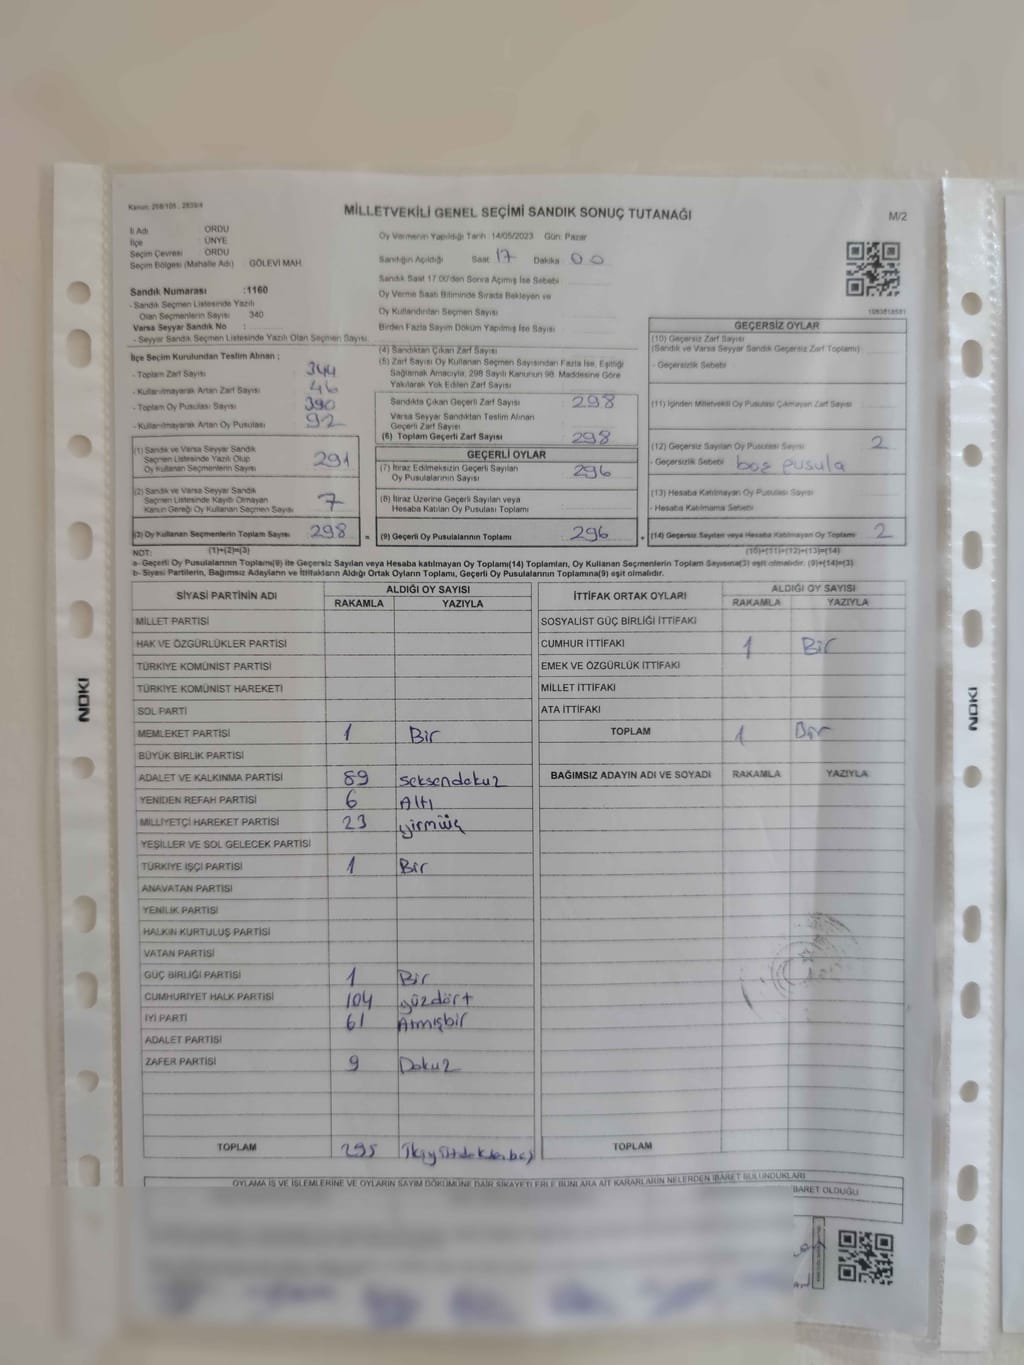 Kanun: 298/105 , 2839/4
MİLLETVEKİLİ GENEL SEÇİMİ SANDIK SONUÇ TUTANAĞI
M/2
İl Adı : ORDU
İlçe : ÜNYE
Seçim Çevresi : ORDU
Seçim Bölgesi (Mahalle Adı) : GÖLEVİ MAH.
Oy Vermenin Yapıldığı Tarih :14/05/2023 Gün: Pazar
Sandığın Açıldığı Saat 17 Dakika 00
Sandık Saat 17:00'den Sonra Açılmış İse Sebebi
Oy Verme Saati Bitiminde Sırada Bekleyen ve
Oy Kullandırılan Seçmen Sayısı
Birden Fazla Sayım Döküm Yapılmış İse Sayısı
Sandık Numarası :1160
- Sandık Seçmen Listesinde Yazılı
Olan Seçmenlerin Sayısı : 340
Varsa Seyyar Sandık No :
- Seyyar Sandık Seçmen Listesinde Yazılı Olan Seçmen Sayısı:
İlçe Seçim Kurulundan Teslim Alınan ;
- Toplam Zarf Sayısı : 344
- Kullanılmayarak Artan Zarf Sayısı : 46
- Toplam Oy Pusulası Sayısı : 390
- Kullanılmayarak Artan Oy Pusulası : 92
(1) Sandık ve Varsa Seyyar Sandık
Seçmen Listesinde Yazılı Olup
Oy Kullanan Seçmenlerin Sayısı 291
(2) Sandık ve Varsa Seyyar Sandık
Seçmen Listesinde Kayıtlı Olmayan
Kanun Gereği Oy Kullanan Seçmen Sayısı 7
(3) Oy Kullanan Seçmenlerin Toplam Sayısı 298
(4) Sandıktan Çıkan Zarf Sayısı
(5) Zarf Sayısı Oy Kullanan Seçmen Sayısından Fazla İse, Eşitliği
Sağlamak Amacıyla, 298 Sayılı Kanunun 98. Maddesine Göre
Yakılarak Yok Edilen Zarf Sayısı
Sandıkta Çıkan Geçerli Zarf Sayısı 298
Varsa Seyyar Sandıktan Teslim Alınan
Geçerli Zarf Sayısı
(6) Toplam Geçerli Zarf Sayısı 298
GEÇERLİ OYLAR
(7) İtiraz Edilmeksizin Geçerli Sayılan
Oy Pusulalarının Sayısı 296
(8) İtiraz Üzerine Geçerli Sayılan veya
Hesaba Katılan Oy Pusulası Toplamı
= (9) Geçerli Oy Pusulalarının Toplamı 296
GEÇERSİZ OYLAR
(10) Geçersiz Zarf Sayısı
(Sandık ve Varsa Seyyar Sandık Geçersiz Zarf Toplamı)
- Geçersizlik Sebebi
(11) İçinden Milletvekili Oy Pusulası Çıkmayan Zarf Sayısı
(12) Geçersiz Sayılan Oy Pusulası Sayısı 2
- Geçersizlik Sebebi boş pusula
(13) Hesaba Katılmayan Oy Pusulası Sayısı
- Hesaba Katılmama Sebebi
+ (14) Geçersiz Sayılan veya Hesaba Katılmayan Oy Toplamı 2
NOT: (1)+(2)=(3) (10)+(11)+(12)+(13)=(14)
a- Geçerli Oy Pusulalarının Toplamı(9) ile Geçersiz Sayılan veya Hesaba katılmayan Oy Toplamı(14) Toplamları, Oy Kullanan Seçmenlerin Toplam Sayısına(3) eşit olmalıdır. (9)+(14)=(3)
b- Siyasi Partilerin, Bağımsız Adayların ve İttifakların Aldığı Ortak Oyların Toplamı, Geçerli Oy Pusulalarının Toplamına(9) eşit olmalıdır.
SİYASİ PARTİNİN ADI ALDIĞI OY SAYISI
RAKAMLA YAZIYLA
MİLLET PARTİSİ
HAK VE ÖZGÜRLÜKLER PARTİSİ
TÜRKİYE KOMÜNİST PARTİSİ
TÜRKİYE KOMÜNİST HAREKETİ
SOL PARTİ
MEMLEKET PARTİSİ 1 Bir
BÜYÜK BİRLİK PARTİSİ
ADALET VE KALKINMA PARTİSİ 89 seksendokuz
YENİDEN REFAH PARTİSİ 6 Altı
MİLLİYETÇİ HAREKET PARTİSİ 23 yirmiüç
YEŞİLLER VE SOL GELECEK PARTİSİ
TÜRKİYE İŞÇİ PARTİSİ 1 Bir
ANAVATAN PARTİSİ
YENİLİK PARTİSİ
HALKIN KURTULUŞ PARTİSİ
VATAN PARTİSİ
GÜÇ BİRLİĞİ PARTİSİ 1 Bir
CUMHURİYET HALK PARTİSİ 104 yüzdört
İYİ PARTİ 61 Atmışbir
ADALET PARTİSİ
ZAFER PARTİSİ 9 Dokuz
TOPLAM 295
İTTİFAK ORTAK OYLARI ALDIĞI OY SAYISI
RAKAMLA YAZIYLA
SOSYALİST GÜÇ BİRLİĞİ İTTİFAKI
CUMHUR İTTİFAKI 1 Bir
EMEK VE ÖZGÜRLÜK İTTİFAKI
MİLLET İTTİFAKI
ATA İTTİFAKI
TOPLAM 1 Bir
BAĞIMSIZ ADAYIN ADI VE SOYADI RAKAMLA YAZIYLA
TOPLAM
OYLAMA İŞ VE İŞLEMLERİNE VE OYLARIN SAYIM DÖKÜMÜNE DAİR ŞİKAYETLERLE BUNLARA AİT KARARLARIN NELERDEN İBARET BULUNDUKLARI
İBARET OLDUĞU
NOKI
NOKI